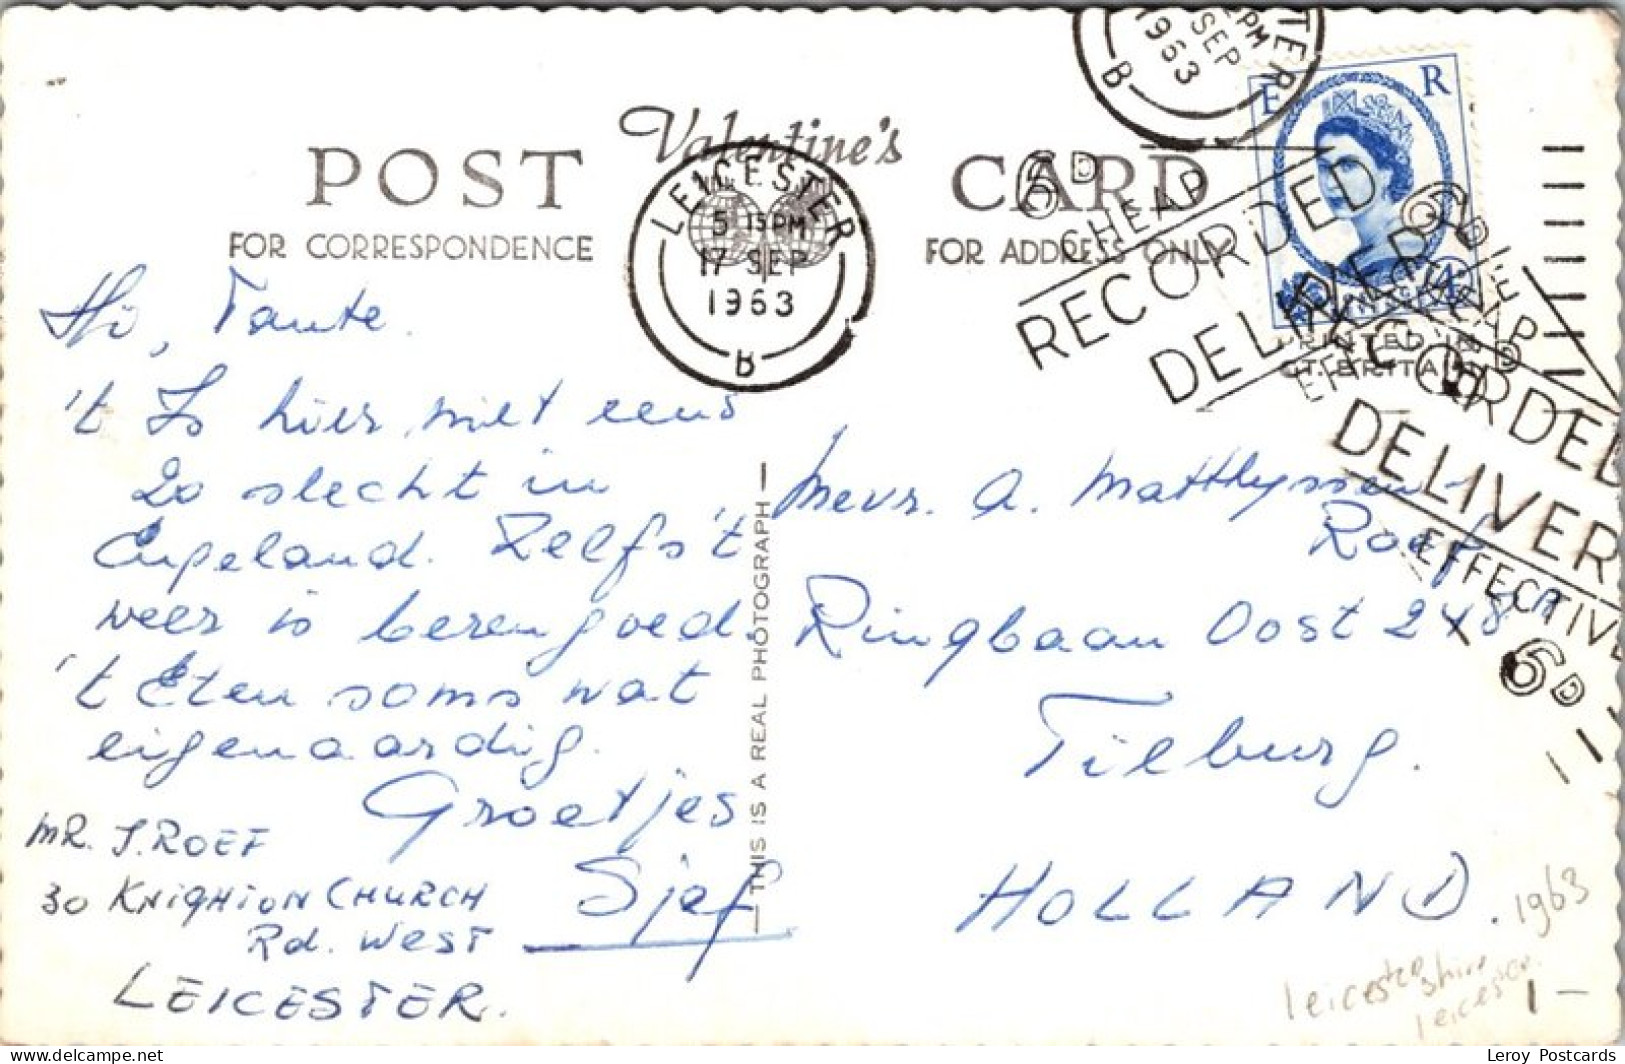 Valentine's
POST CARD
FOR CORRESPONDENCE
FOR ADDRESS ONLY
LEICESTER
5 15 PM
17 SEP
1963
B
PM
SEP
1963
B
E R
6D
CHEAP
RECORDED
DELIVER
RECORDED
DELIVER
EFFECTIVE
6D
PRINTED IN
GT. BRITAIN
Hi, Tante.
't Is hier niet eens
zo slecht in
Engeland. Zelfs 't
weer is berengoed.
't Eten soms wat
eigenaardig.
Groetjes
Sjef
MR. J. ROEF
30 KNIGHTON CHURCH
Rd. WEST
LEICESTER.
THIS IS A REAL PHOTOGRAPH
Mevr. A. Matthyssen-
Roef
Ringbaan Oost 248
Tilburg.
HOLLAND.
1963
Leicestershire
Leicester
Leroy Postcards
delcampe.net